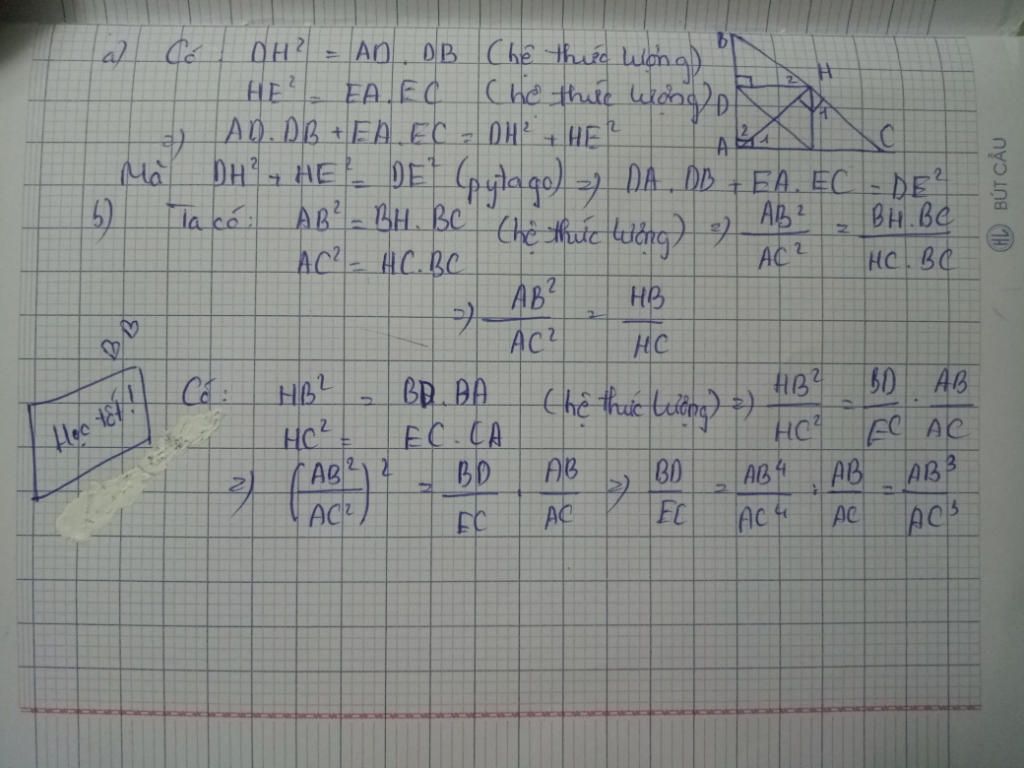 a) Có DH² = AD . DB (hệ thức lượng)
HE² = EA . EC (hệ thức lượng)
=) AD . DB + EA . EC = DH² + HE²
Mà DH² + HE² = DE² (pytago) =) DA . DB + EA . EC = DE²
B
H
2
D
1
2
A
1
C
b) Ta có: AB² = BH . BC (hệ thức lượng) =) AB²/AC² = BH . BC/HC . BC
AC² = HC . BC
=) AB²/AC² = HB/HC
Có: HB² = BD . BA (hệ thức lượng) =) HB²/HC² = BD/EC . AB/AC
HC² = EC . CA
=) (AB²/AC²)² = BD/EC . AB/AC =) BD/EC = AB⁴/AC⁴ : AB/AC = AB³/AC³
Học tốt!
HL BÚT CẦU